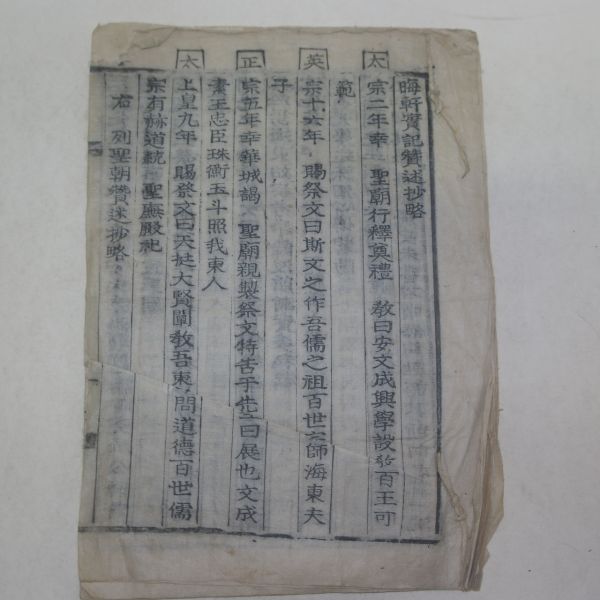 晦軒實記贊述抄略
太宗二年幸 聖廟行釋奠禮 敎曰安文成興學設敎百王可
範
英宗十六年 賜祭文曰斯文之作吾儒之祖百世之師海東夫
子
正宗五年幸華城謁 聖廟親製祭文特告于先 曰展也文成
素王忠臣珠衡玉斗照我東人
太上皇九年 賜祭文曰天挺大賢闡敎吾東 問道德百世儒
宗有赫道統 聖廡殿祀
右 列聖朝贊述抄略